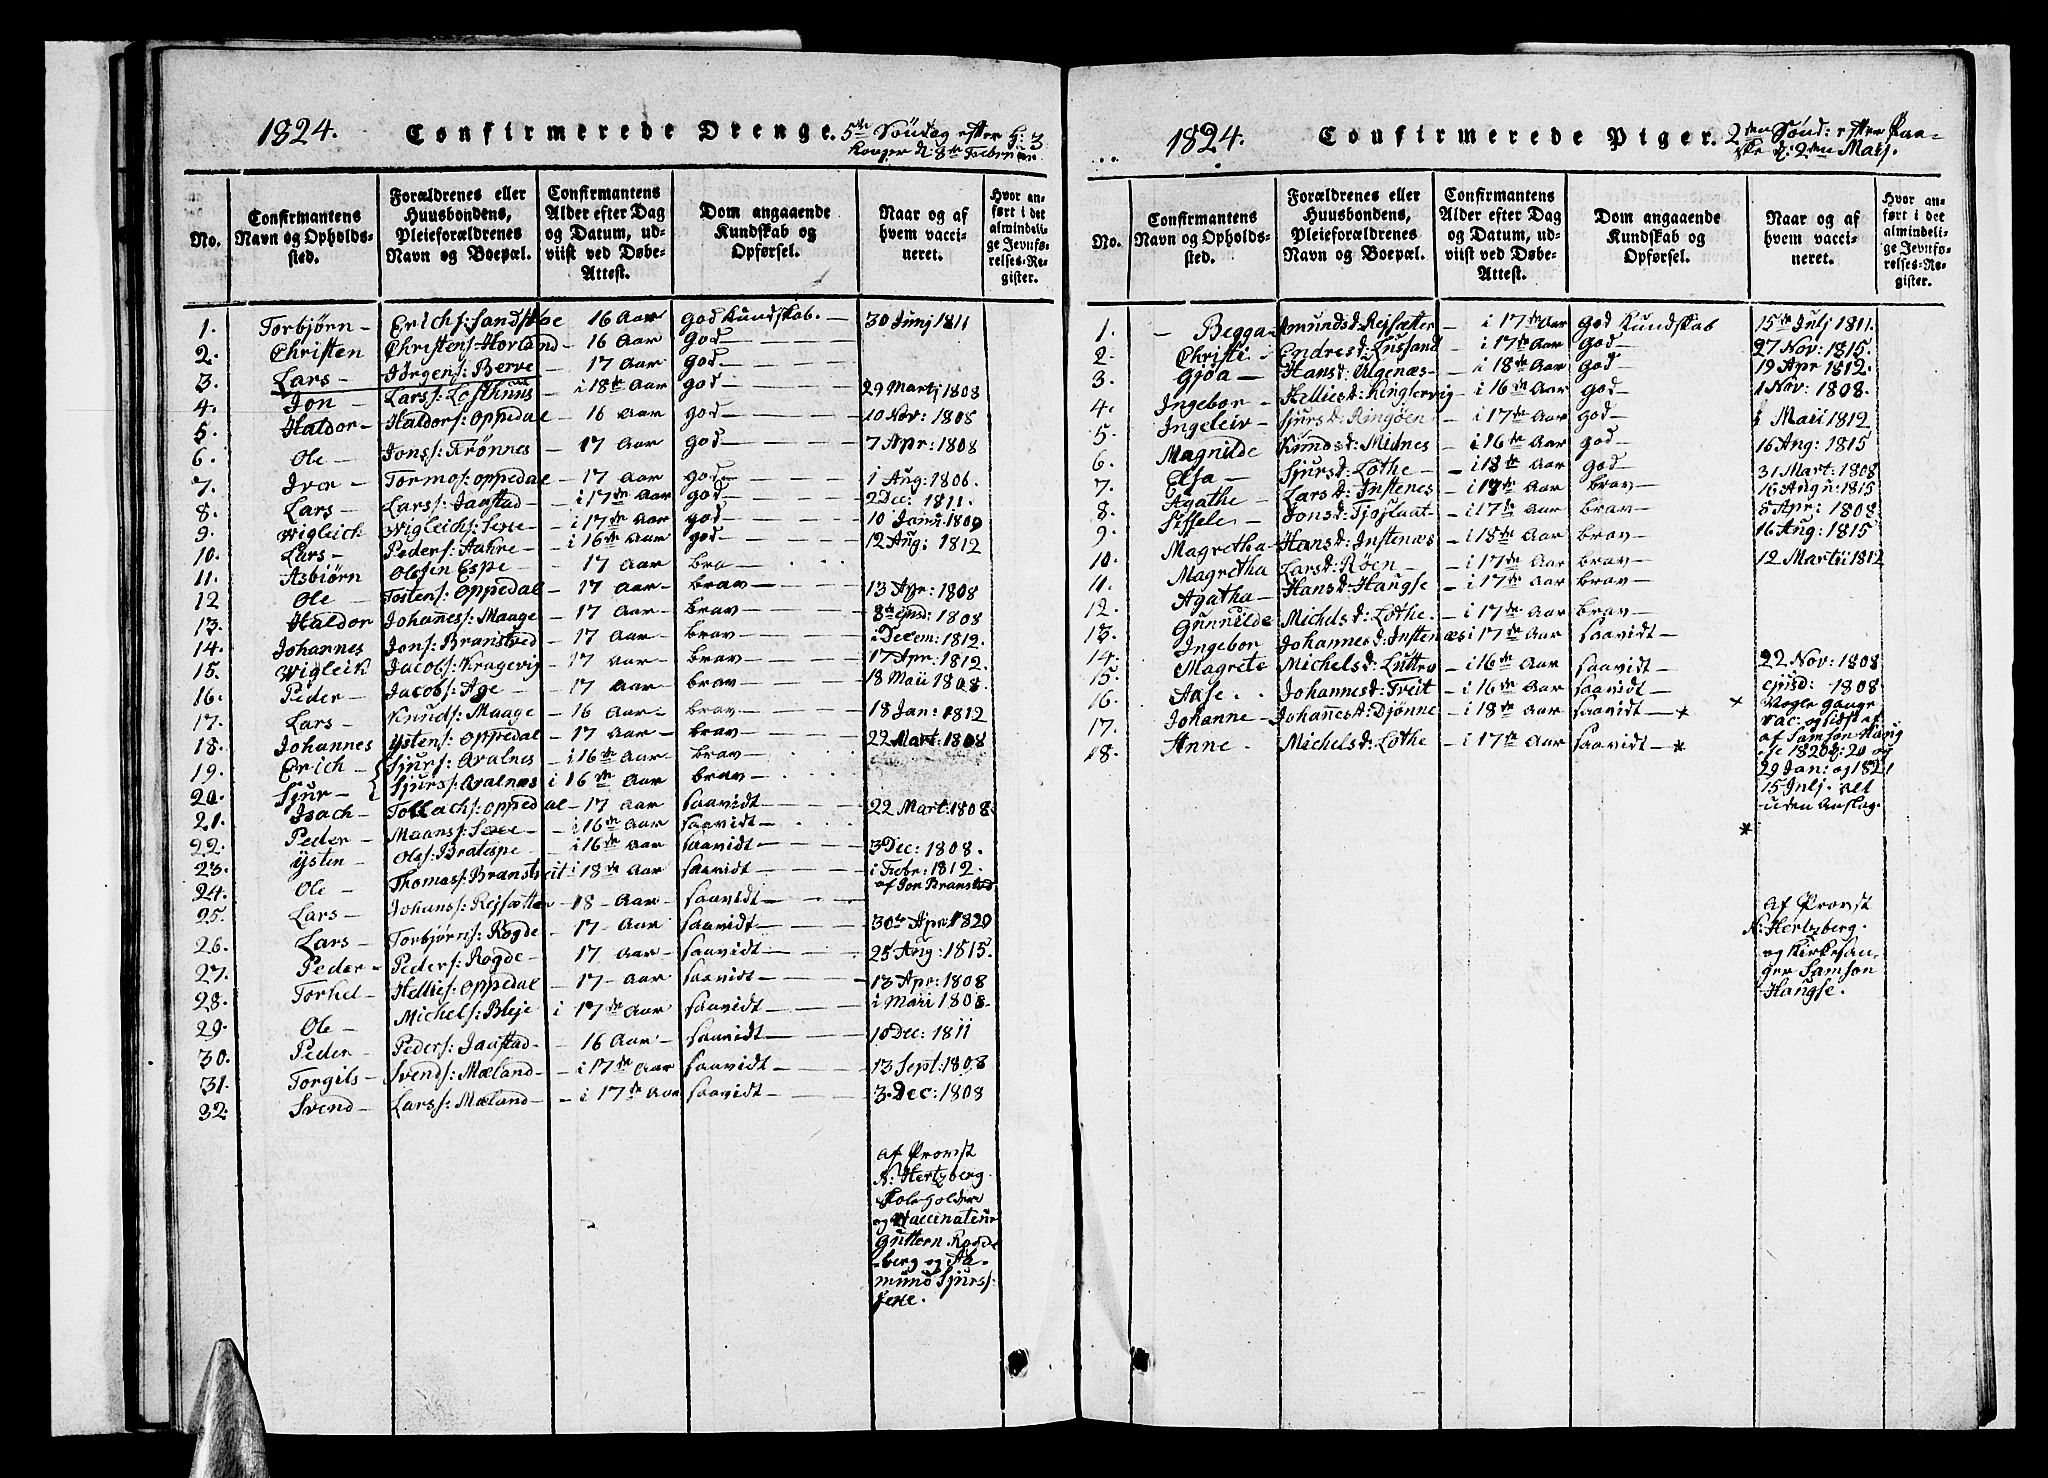 1824. Confirmerede Drenge. 5te Söndag efter H: 3
Konger d: 8de Februar.
No.
Confirmantens
Navn og Opholds-
sted.
Forældrenes eller
Huusbondens,
Pleieforældrenes
Navn og Boepæl.
Confirmantens
Alder efter Dag
og Datum, ud-
viist ved Døbe-
Attest.
Dom angaaende
Kundskab og
Opførsel.
Naar og af
hvem vacci-
neret.
Hvor an-
ført i det
almindeli-
ge Jevnfø-
relses-Re-
gister.
1. Torbjørn – Erichs: Sandstöe 16 Aar god Kundskab. – 30 Junj 1811
2. Christen Christens: Horland – 16 Aar god –
3. Lars – Jörgens: Berve – 17 Aar god –
4. Jon – Larss: Lofthuus i 18de Aar god – 29 Martj 1808
5. Haldor – Haldors: Oppedal – 16 Aar god – 10 Nov: 1808
6. Ole – Jons: Krönnes – 17 Aar god – 7 Apr: 1808
7. Iver – Tormos: Oppedal – 17 Aar god – 1 Aug: 1806.
8. Lars – Larss: Jaastad – i 17de Aar god – 2 Dec: 1811.
9. Wigleich Wigleichs: Sexe – i 17de Aar god – 10 Janu: 1809
10. Lars – Peders: Aahre – i 16de Aar god – 12 Aug: 1812
11. Asbiörn Olesen Espe – 17 Aar bra –
12 Ole – Tostens: Oppedal – 17 Aar – brav – 13 Apr: 1808
13. Haldor Johannes: Maage – 17 Aar – brav – 8de ejusd: 1808
14. Johannes Jons: Branstved – 17 Aar – brav – i Decem: 1812.
15. Wigleik Jacobs: Kragevig – 17 Aar – brav – 17 Apr: 1812.
16. Peder – Jacobs: Age – 17 Aar – brav – 18 Maii 1808.
17. Lars – Knuds: Maage – 16 Aar – brav – 18 Jan: 1812
18. Johannes Ystens: Oppedal – 17 Aar – brav – 22 Mart: 1808
19. Erich – { Sjurs: Aralnes – i 16de Aar brav –
20. Sjur – { Sjurss: Aralnæs i 16de Aar brav –
21. Isach – Tollachs: Oppedal – 17 Aar saavidt – 22 Mart: 1808.
22. Peder – Maanss: Sexe – i 16de Aar saavidt –
23. Ysten – Oles: Bratespe – i 16de Aar saavidt – 3 Dec: 1808.
24. Ole – Thomass: Bransteit i 18de Aar saavidt – i Febr: 1812.
af Jon Bransted
25. Lars – Johans: Rejsætter – 18 – Aar – saavidt –
26. Lars – Torbjörns: Rogde – 17 – Aar saavidt – 30te Apr: 1820
27. Peder – Peders: Rogde – 17 Aar saavidt – 25 Aug: 1815.
28. Torkel – Hellies: Oppedal – 17 – Aar saavidt – 13 Apr: 1808
29. Ole – Michels: Bleje i 17de Aar saavidt – i Maii 1808.
30. Peder – Peders: Jaastad – 16 Aar – saavidt – 10 Dec: 1811
31. Torgils – Svends: Mæland – i 17de Aar saavidt – 13 Sept: 1808
32. Svend – Larss: Mæland – i 17de Aar saavidt – 3. Dec: 1808
af Provst
N: Hertzberg.
Skoleholder
og Vaccinateur
Guttorm Rogde
-berg og Aa-
mund Sjurss:
Sexe.
1824. Confirmerede Piger. 2den Sönd: efter Paa-
ske d: 2den Maij.
No.
Confirmantens
Navn og Opholds-
sted.
Forældrenes eller
Huusbondens,
Pleieforældrenes
Navn og Boepæl.
Confirmantens
Alder efter Dag
og Datum, ud-
viist ved Døbe-
Attest.
Dom angaaende
Kundskab og
Opførsel.
Naar og af
hvem vacci-
neret.
Hvor an-
ført i det
almindeli-
ge Jevnfø-
relses-Re-
gister.
1. – Begga – Amundsd: Rejsæter – i 17de Aar god Kundskab 15de Julj 1811.
2. Christi – Endresd: Lussand – i 17de Aar god – 27 Nov: 1815.
3. Gjöa – Hansd: Algenæs – i 18de Aar god – 19 Apr 1812.
4. Ingebor – Helliesd: Ringlervig – i 16de Aar god – 1 Nov: 1808.
5. Ingeleiv – Sjursd: Ringöen – i 17de Aar god – i Maii 1812
6. Magnilde Knudsd: Midnes – i 16de Aar god – 16 Aug: 1815
7. Elsa – Sjursd: Lothe – i 18de Aar god – 31 Mart: 1808
8. Agathe – Larsd: Instenes – i 18de Aar brav – 16 Augu: 1815
9. Sissele – Jonsd: Tjoflaat – i 17de Aar brav – 8 Apr: 1808
10. Magretha – Hansd: Instenæs – i 18de Aar brav – 16 Aug: 1815
11. Magretha Larsd: Röen – i 17de Aar brav – 12 Martii 1812
12. Agatha – Hansd: Haugse – i 17de Aar brav –
13. Gunnilde Michelsd: Lothe. – i 17de Aar brav –
14. Ingebor Johannesd: Instenæs i 17de Aar saavidt –
15. Magrete Michelsd: Luttro – i 16de Aar saavidt – 22 Nov: 1808
16. Aase. Johannesd: Freit – i 16de Aar saavidt – ejusd: 1808
17. Johanne – Johannesd: Djönne – i 18de Aar saavidt – *
18. Anne. Michelsd: Lothe – i 17de Aar saavidt – *
* Nogle gange
vac: og sidst af
af Samson Haug
se 1820 d: 20 og
29 Jan: og 1821
15 Julj. alt
uden Anslag.
*
af Provst
N: Hertzberg.
og Kirkesan-
ger Samson
Haugse.